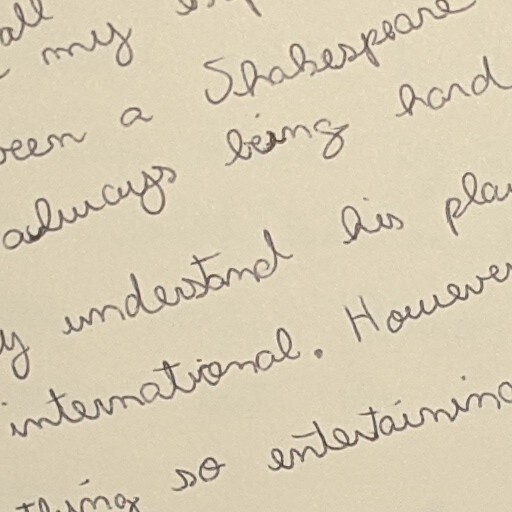 all
my
een a Shakespeare
always being hard
y understand his pla
international. However
thing so entertaining